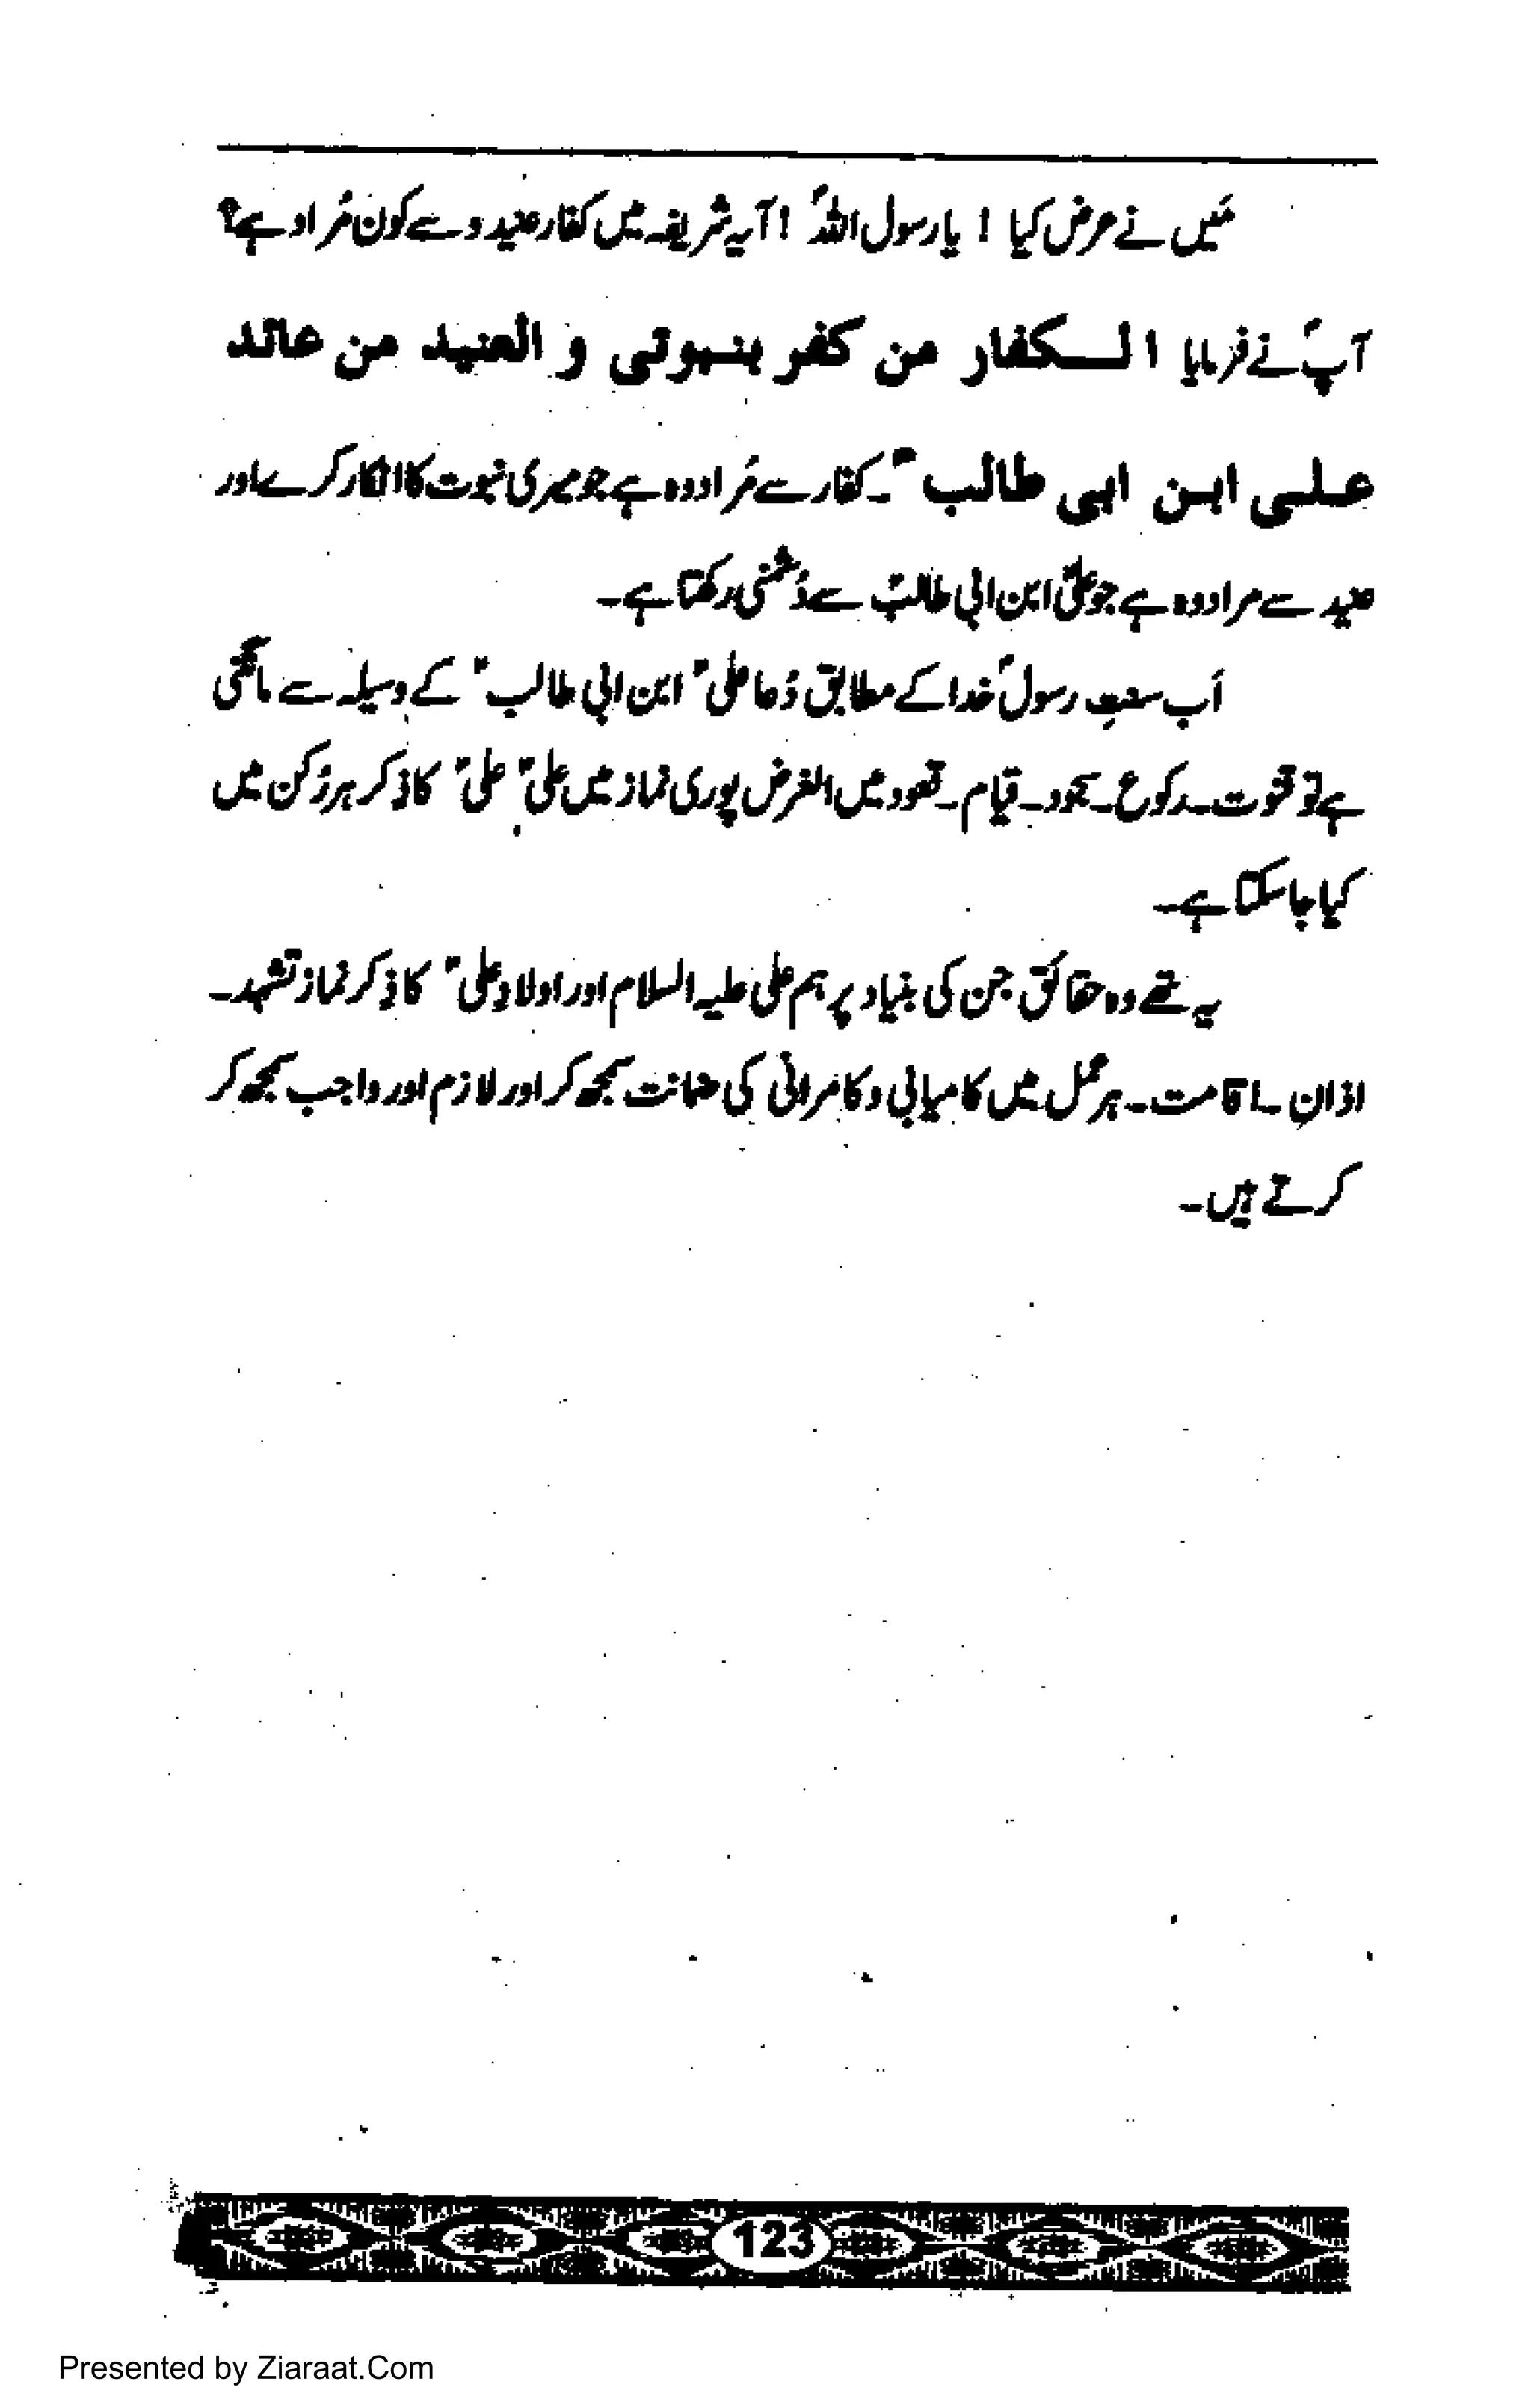 مَیں نے عرض کیا ! یا رسول اللہؐ ! آیہ شریفہ میں کفار عنید و سے کون مُراد ہے؟
آپؐ نے فرمایا الــکفار من کفر بنبوتی و العنید من عاند
عــلــی ابــن ابی طالب ۔ کفار سے مُراد وہ ہے جو میری نبوت کا انکار کرے اور
عنید سے مراد وہ ہے جو علیؑ ابن ابی طالبؑ سے دُشمنی رکھتا ہے۔
اَب سنتِ رسولؐ خدا کے مطابق دُعا علیؑ ابن ابی طالبؑ کے وسیلہ سے مانگنی
ہے تو قنوت۔ رکوع۔ سجود۔ قیام۔ قعود میں الغرض پوری نماز میں علیؑ علیؑ کا ذکر ہر رُکن میں
کیا جا سکتا ہے۔
یہ تھے وہ حقائق جن کی بنیاد پر ہم علی علیہ السلام اور اولاد علیؑ کا ذکر نماز تشہد۔
اذان ۔ اقامت ۔ ہر عمل میں کامیابی و کامرانی کی ضمانت سمجھ کر اور لازم اور واجب سمجھ کر
کرتے ہیں۔
123
Presented by Ziaraat.Com